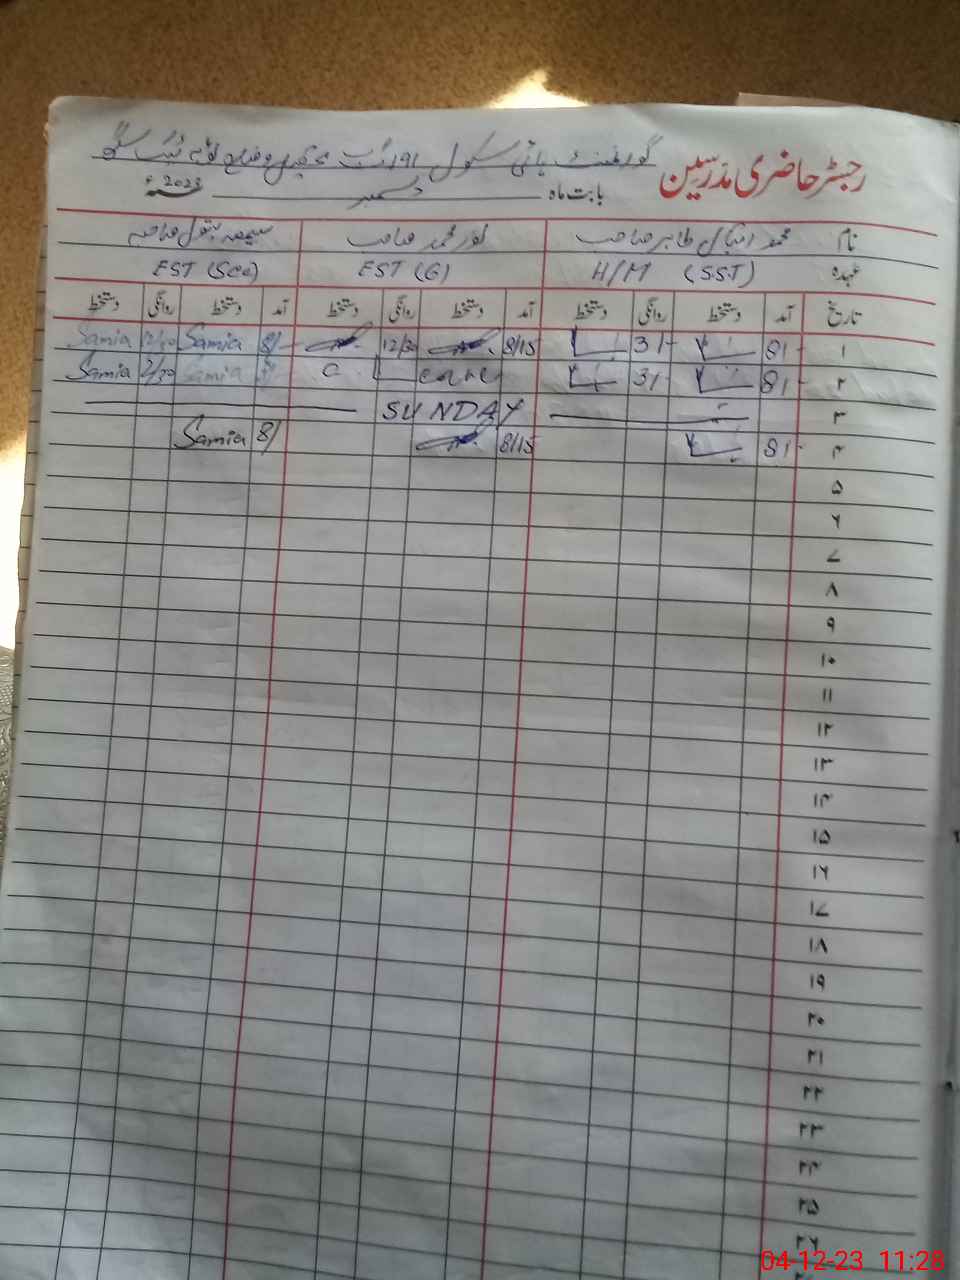 رجسٹر حاضری مدرسین گورنمنٹ ہائی سکول
بابت ماہ دسمبر 2023ء
نام محمد اقبال طاہر صاحب نور محمد صاحب سمیعہ بتول صاحبہ
عہدہ H/M (SST) EST (G) EST (Sce)
تاریخ آمد دستخط روانگی دستخط آمد دستخط روانگی دستخط آمد دستخط روانگی دستخط
۱ 8/- 3/- 8/15 12/30 8/- Samia 12/30 Samia
۲ 8/- 3/- Leave Samia 2/30 Samia
۳ SUNDAY
۴ 8/- 8/15 8/ Samia
۵
۶
۷
۸
۹
۱۰
۱۱
۱۲
۱۳
۱۴
۱۵
۱۶
۱۷
۱۸
۱۹
۲۰
۲۱
۲۲
۲۳
۲۴
۲۵
۲۶
04-12-23 11:28